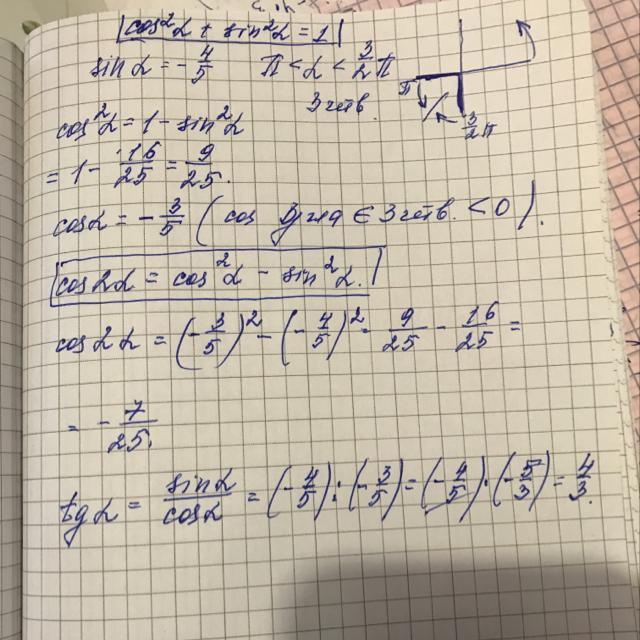 cos²α + sin²α = 1
sin α = -4/5   π < α < 3/2 π
3 четв.
π
3/2 π
cos²α = 1 - sin²α
= 1 - 16/25 = 9/25.
cos α = -3/5 ( cos угла ∈ 3 четв. < 0 ).
cos 2α = cos²α - sin²α.
cos 2α = (-3/5)² - (-4/5)² = 9/25 - 16/25 =
= -7/25.
tg α = sin α/cos α = (-4/5) : (-3/5) = (-4/5) · (-5/3) = 4/3.